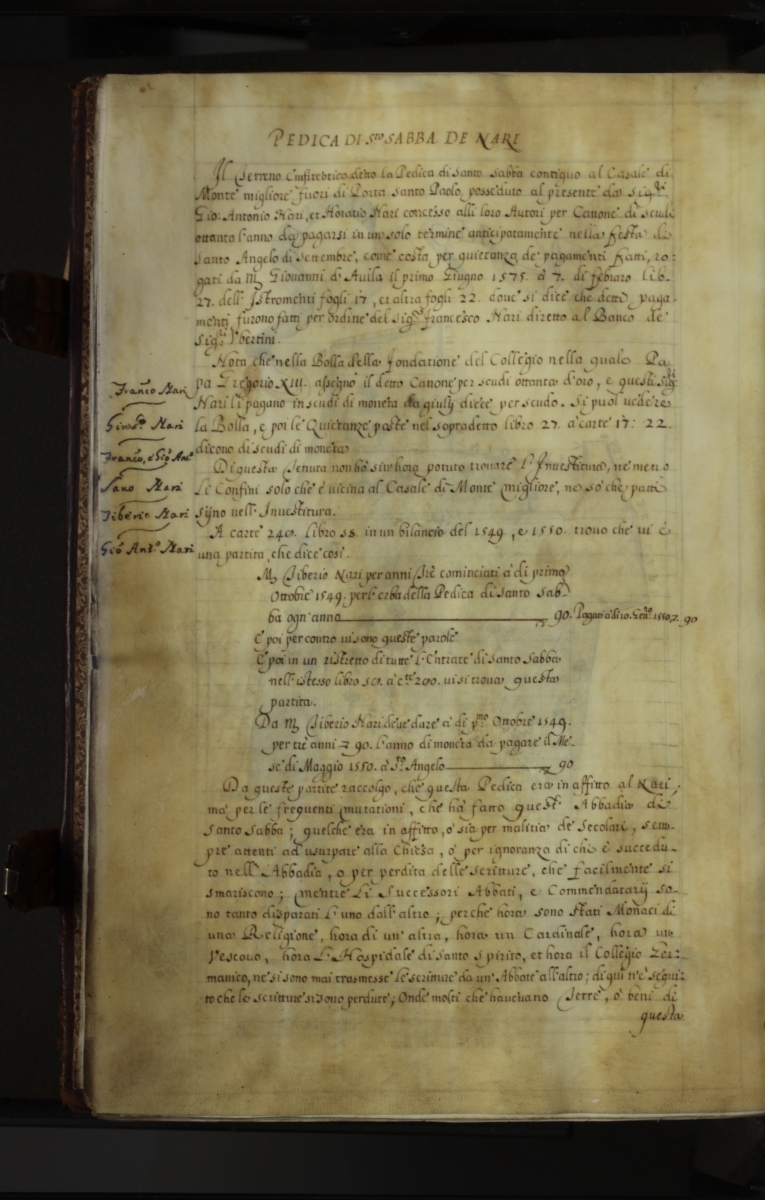 PEDICA DI S.to SABBA DE NARI
Il Terreno Emfiteotico detto la Pedica di Santo Sabba contiguo al Casale di
Monte migliore fuori di Porta Santo Paolo, posseduto al presente da Sig.ri
Gio: Antonio Nari, et Horatio Nari concesso alli loro Autori per Canone di Scudi
ottanta l'anno da pagarsi in un solo termine anticipatamente nella festa di
Santo Angelo di Settembre, come costa per quietanza de pagamenti fatti, ro-
gati da M. Giovanni d'Avila il primo Giugno 1575. à 7. di febraro lib.
27. dell'Istromenti fogli 17, et altra fogli 22. doue si dice che detti paga-
menti furono fatti per ordine del Sig.r francesco Nari diretto al Banco de
Sig.ri Vbertini.
Nota che nella Bolla della fondatione del Collegio nella quale Pa-
pa Gregorio XIII. assegnò il detto Canone per scudi ottanta d'oro, e questi Sig.ri
Nari li pagano in scudi di moneta da giulij diece per scudo. Si puol uedere
la Bolla, e poi le Quietanze poste nel sopradetto libro 27. à carte 17: 22.
dicono di scudi di moneta
Di questa Tenuta non hò sin'hora potuto trouare l'Inuestitura, ne meno
li Confini solo che è vicina al Casale di Monte Migliore, ne sò che patti
sijno nell'Inuestitura.
A carte 240. libro 58. in un bilancio del 1549, e 1550. trouo che ui è
una partita, che dice così.
M. Tiberio Nari per anni Trè cominciati à di primo
Ottobre 1549. per l'erba della Pedica di Santo Sab-
ba ogn'anno 90. Pagati à di 10. Gen.o 1550. 90
E poi per contro ui sono queste parole
E poi in un ristretto di tutte l'Entrate di Santo Sabba
nell'istesso libro 50. à c.te 200. ui si troua questa
partita.
Da M. Tiberio Nari deue dare à di p.mo Ottobre 1549.
per trè anni 90. l'anno di moneta da pagare il Me-
se di Maggio 1550. à S.to Angelo 90
Da queste partite raccolgo, che questa Pedica era in affitto al Nari,
mà per le frequenti mutationi, che hà fatto quest'Abbadia di
Santo Sabba; quelche era in affitto, ò sia per malitia de Secolari, sem-
pre attenti ad usurpare alla Chiesa, ò per ignoranza di chi è succedu-
to nell'Abbadia, ò per perdita delle scritture, che facilmente si
smariscono; mentre li Successori Abbati, e Commendatarij so-
no tanto disparati l'uno dall'altro; perche hora sono stati Monaci di
una Religione, hora di un'altra, hora un Cardinale, hora un
Vescouo, hora l'Hospidale di Santo Spirito, et hora il Collegio Ger-
manico, ne si sono mai trasmesse le scritture da un'Abbate all'altro; di qui n'è segui-
to che le scritture si sono perdute; Onde molti che haueuano Terre, ò beni di
questa
Franc.o Nari
Girol.o Nari
Franc.o, e Gio: Ant.o
Nari
Tiberio Nari
Gio: Ant.o Nari